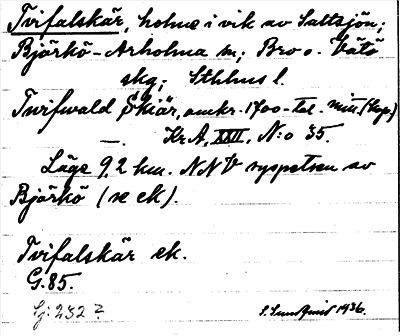 Tvifalskär, holme i vik av Saltsjön;
Björkö-Arholma sn; Bro o. Vätö
skg; Sthlms l.
Twifwald Skiär, omkr. 1700-tal. min. (kop.)
—. KrA, XXII, N:o 35.
Läge 9,2 km. NNV sydspetsen av
Björkö (se ek).
Tvifalskär ek.
G. 85.
Gj: 252 2
S. Sundquist 1936.